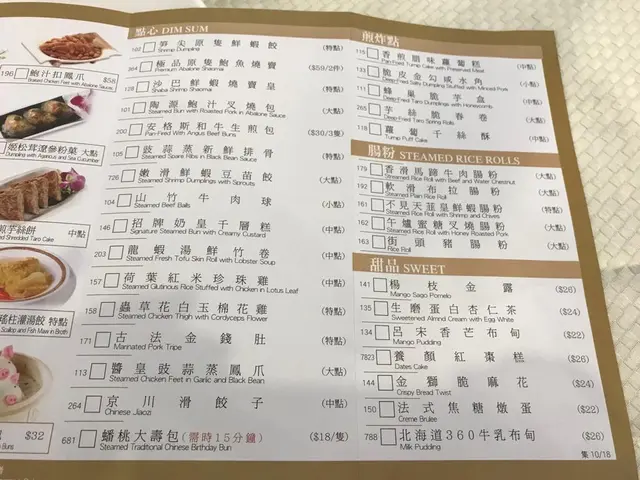 196 鮑汁扣鳳爪 $58
Braised Chicken Feet with Abalone Sauces
姬松茸遼參粉菓 大點
Dumpling with Agaricus and Sea Cucumber
煎芋絲餅 中點
Shredded Taro Cake
瑤柱灌湯餃 特點
Scallop and Fish Maw in Broth
$32
Buns
點心 DIM SUM
102 筍尖原隻鮮蝦餃 (特點)
Shrimp Dumpling
364 極品原隻鮑魚燒賣 ($59/2件)
Premium Abalone Shaomai
128 沙巴鮮蝦燒賣皇 (特點)
Shaba Shrimp Shaomai
101 陶源鮑汁叉燒包 (大點)
Steamed Bun with Roasted Pork in Abalone Sauce
200 安格斯和牛生煎包 ($30/3隻)
Pan-Fired With Angus Beef Buns
105 豉蒜蒸新鮮排骨 (特點)
Steamed Spare Ribs in Black Bean Sauce
726 嫩滑鮮蝦豆苗餃 (大點)
Steamed Shrimp Dumplings with Sprouts
104 山竹牛肉球 (小點)
Steamed Beef Balls
146 招牌奶皇千層糕 (中點)
Signature Steamed Bun with Creamy Custard
203 龍蝦湯鮮竹卷 (中點)
Steamed Fresh Tofu Skin Roll with Lobster Soup
157 荷葉紅米珍珠雞 (中點)
Steamed Glutinous Rice Stuffed with Chicken in Lotus Leaf
158 蟲草花白玉棉花雞 (特點)
Steamed Chicken Thigh with Cordyceps Flower
171 古法金錢肚 (特點)
Marinated Pork Tripe
113 醬皇豉蒜蒸鳳爪 (大點)
Steamed Chicken Feet in Garlic and Black Bean
264 京川滑餃子 (中點)
Chinese Jiaozi
681 蟠桃大壽包(需時15分鐘) ($18/隻)
Steamed Traditional Chinese Birthday Bun
煎炸點
115 香煎腊味蘿蔔糕 (中點)
Pan-Fried Turnip Cake with Preserved Meat
133 脆皮金勾咸水角 (中點)
Deep-Fried Salts Dumpling Stuffed with Minced Pork
111 蜂巢脆芋盒 (中點)
Deep-Fried Taro Dumplings with Honeycomb
265 芋絲脆春卷 (大點)
Deep-Fried Taro Spring Rolls
118 蘿蔔千絲酥 (中點)
Turnip Puff Cake
腸粉 STEAMED RICE ROLLS
175 香滑馬蹄牛肉腸粉 (大點)
Steamed Rice Roll with Beef and Water Chestnut
192 軟滑布拉腸粉 (大點)
Steamed Plain Rice Roll
161 不見天韮皇鮮蝦腸粉 (特點)
Steamed Rice Roll with Shrimp and Chives
162 午爐蜜糖叉燒腸粉 (大點)
Steamed Rice Roll with Honey Roasted Pork
163 街頭豬腸粉 (大點)
Rice Roll
甜品 SWEET
141 楊枝金露 ($26)
Mango Sago Pomelo
135 生磨蛋白杏仁茶 ($24)
Sweetened Almond Cream with Egg White
134 呂宋香芒布甸 ($22)
Mango Pudding
7823 養顏紅棗糕 ($26)
Dates Cake
144 金獅脆麻花 ($24)
Crispy Bread Twist
150 法式焦糖燉蛋 ($22)
Creme Brulee
788 北海道360牛乳布甸 ($26)
Milk Pudding
集 10/18